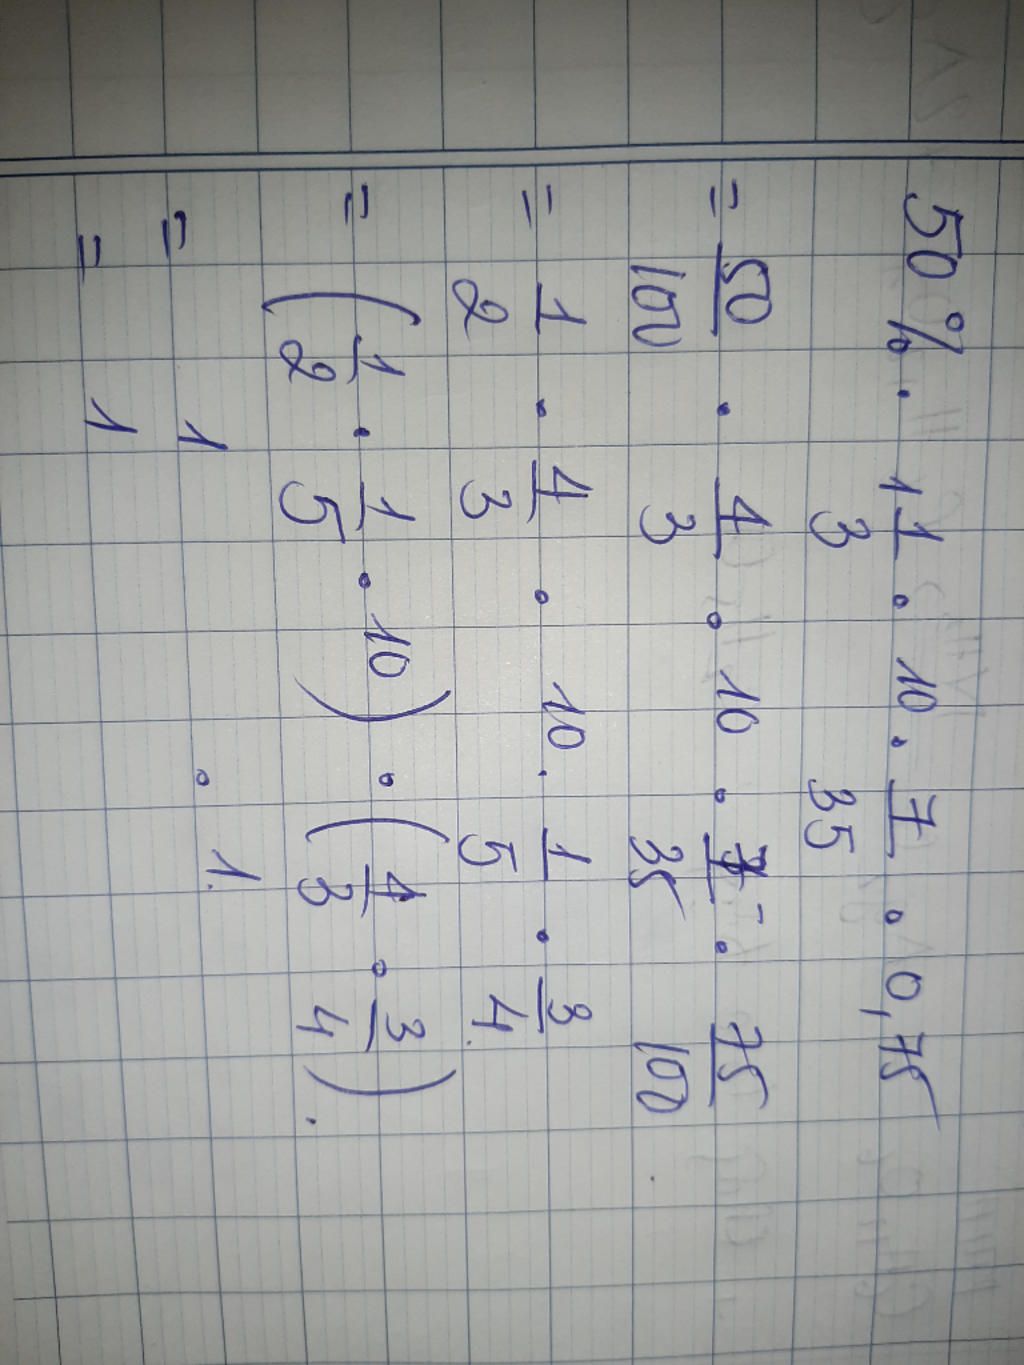 50% . 1 1/3 . 10 . 7/35 . 0,75
= 50/100 . 4/3 . 10 . 7/35 . 75/100
= 1/2 . 4/3 . 10 . 1/5 . 3/4
= (1/2 . 1/5 . 10) . (4/3 . 3/4)
= 1 . 1
= 1